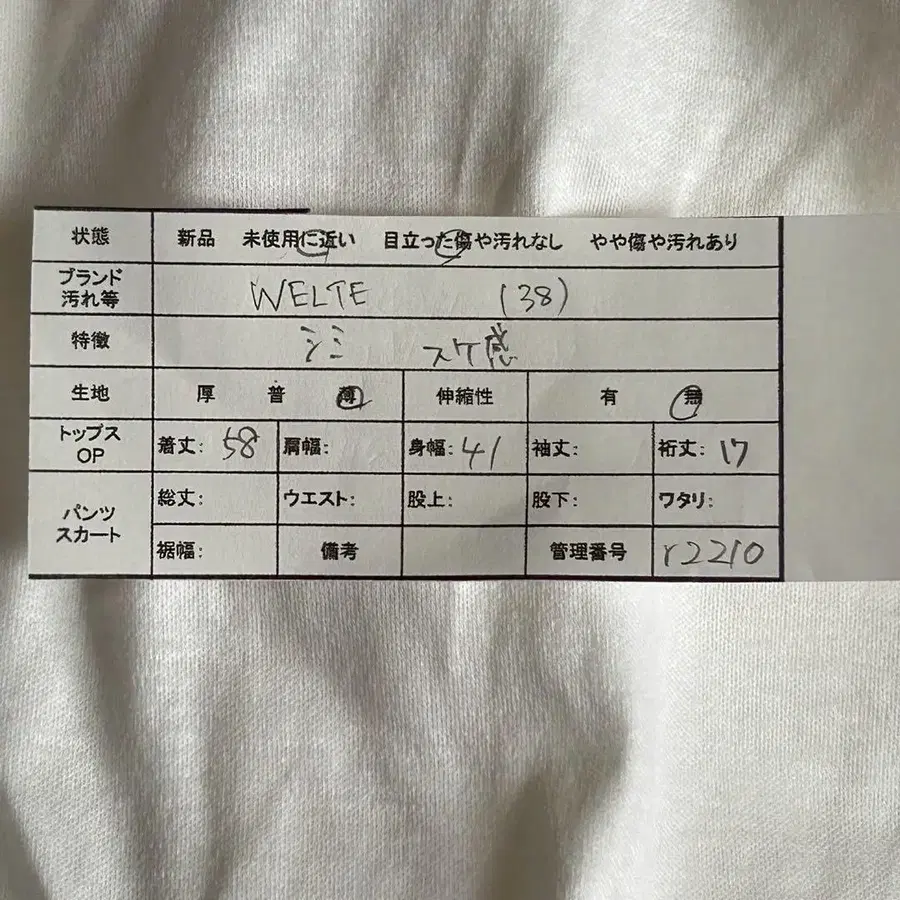 状態 新品 未使用に近い 目立った傷や汚れなし やや傷や汚れあり
ブランド
汚れ等 WELTE (38)
特徴 シミ スケ感
生地 厚 普 薄 伸縮性 有 無
トップス
OP 着丈: 58 肩幅: 身幅: 41 袖丈: 裄丈: 17
パンツ
スカート 総丈: ウエスト: 股上: 股下: ワタリ:
裾幅: 備考 管理番号 r2210